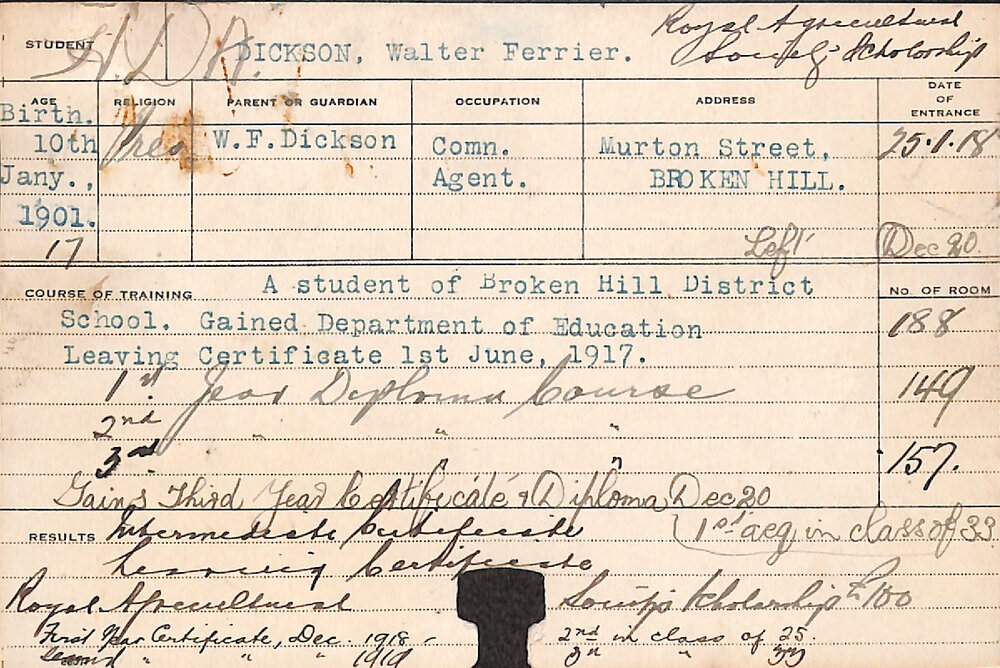 Royal Agricultural
Society Scholarship
STUDENT H.D.A. DICKSON, Walter Ferrier.
AGE RELIGION PARENT OR GUARDIAN OCCUPATION ADDRESS DATE OF ENTRANCE
Birth.
10th Pres. W.F.Dickson Comn. Murton Street, 25.1.18
Jany., Agent. BROKEN HILL.
1901.
17 Left Dec 20.
COURSE OF TRAINING A student of Broken Hill District No. OF ROOM
School. Gained Department of Education 188
Leaving Certificate 1st June, 1917.
1st Year Diploma Course 149
2nd " " "
3rd " 157.
Gains Third Year Certificate & Diploma Dec 20
RESULTS Intermediate Certificate (1st aeg in class of 33
Leaving Certificate
Royal Agricultural Society's Scholarship £100
First Year Certificate, Dec. 1918 - 2nd in class of 25.
Second " " " 1919 "